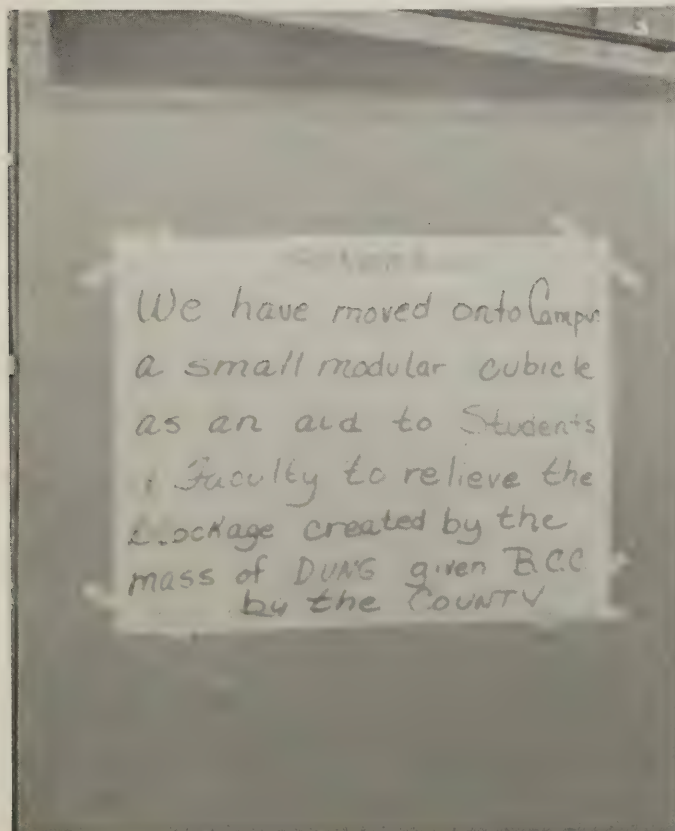 We have moved onto Campus
a small modular cubicle
as an aid to Students
Faculty to relieve the
blockage created by the
mass of DUNG given B.C.C
by the COUNTY